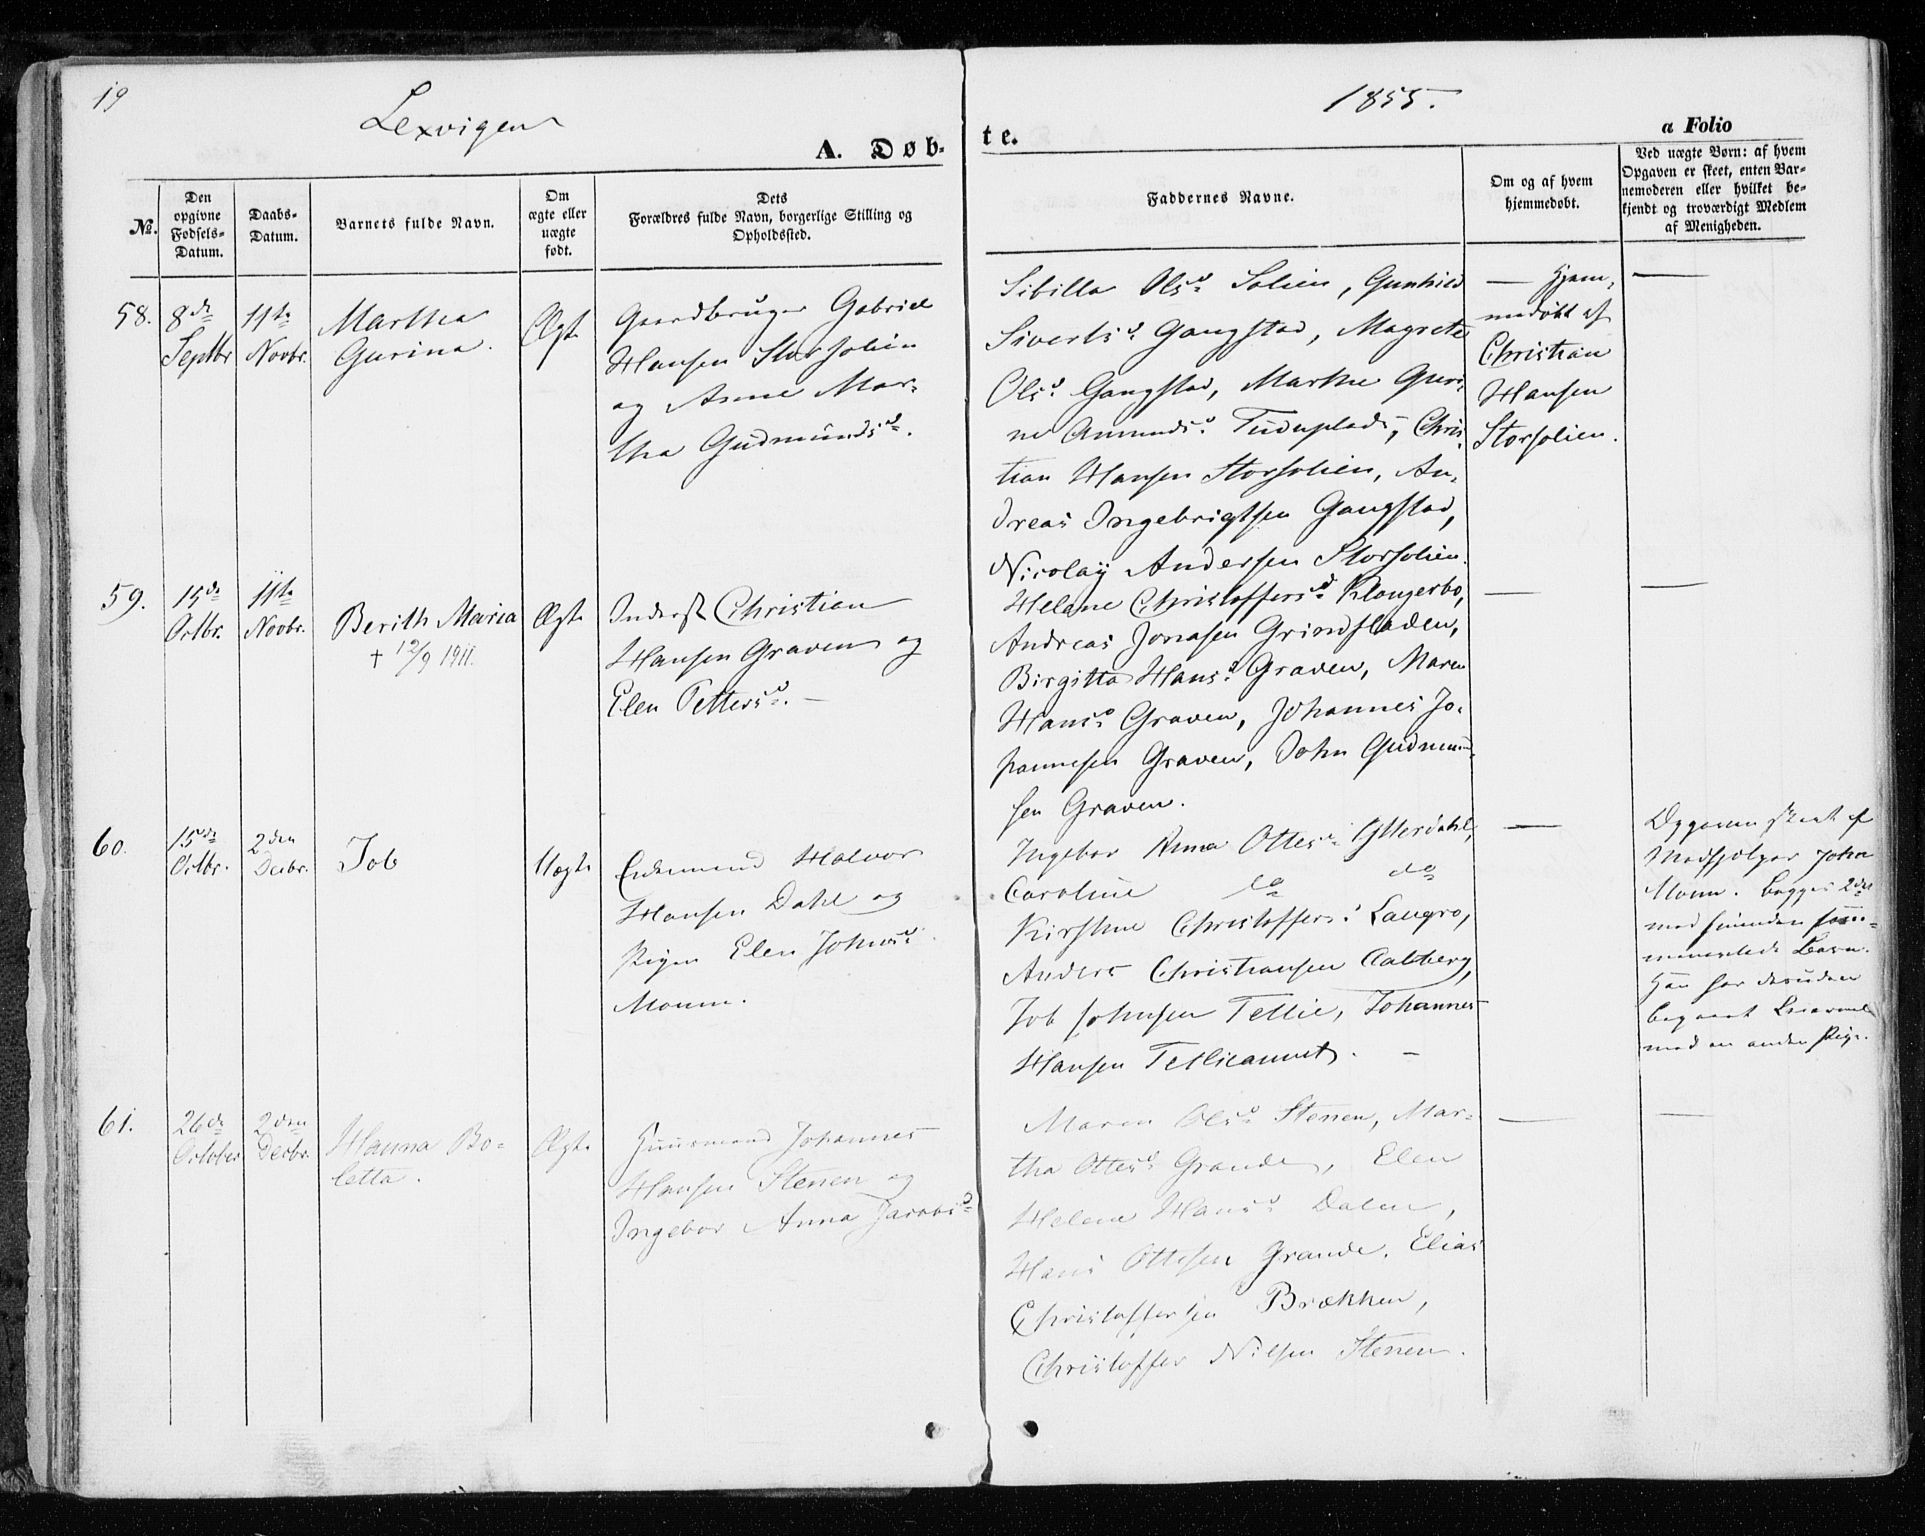 19
Lexvigen
1855.
A. Døb-
te.
a Folio
No.
Den opgivne Fødsels-Datum.
Daabs-Datum.
Barnets fulde Navn.
Om ægte eller uægte født.
Dets Forældres fulde Navn, borgerlige Stilling og Opholdssted.
Faddernes Navne.
Om og af hvem hjemmedøbt.
Ved uægte Børn: af hvem Opgaven er skeet, enten Barnemoderen eller hvilket bekjendt og troværdigt Medlem af Menigheden.
58.
8de
Septbr
11te
Novbr.
Martha
Gurina.
Ægte
Gaardbruger Gabriel
Hansen Storsolien
og Anne Mar-
tha Gudmundsd.
Sibilla Olsd. Solien, Gunhild
Sivertsd. Gangstad, Magrete
Olsd. Gangstad, Marthe Guri-
ne Amundsd. Chris-
tian Hansen Storsolien, An-
dreas Ingebrigtsen Gangstad,
Nicolay Andersen Storsolien.
— Hjem-
medøbt af
Christian
Hansen
Storsolien.
—
59.
15de
Octbr.
11te
Novbr.
Berith Maria
† 12/9 1911.
Ægte
Inderst Christian
Hansen Graven og
Elen Pettersd. —
Helene Christoffersd. Klongerbo,
Andreas Jonasen Grindstaden,
Birgitta Hansd. Graven, Maren
Hansd. Graven, Johannes Jo-
hannesen Graven, John Gudmun-
sen Graven.
—
—
60.
15de
Octbr.
2den
Decbr.
Job
Uægte
Halvor
Hansen Dahl og
Pigen Elen Johnsd.
Moum.
Ingebor Anna Ottesd. Ytterdahl,
Caroline do do
Kirstine Christoffersd. Langro,
Anders Christiansen Aalberg,
Job Johnsen Tellie, Johannes
Hansen —
—
Opgaven skeet af
Medhjelper John
Moum. Begges 2det
med hinanden sam-
menavlede Barn.
Han har desuden
begaaet Leiermaal
med en anden Pige.
61.
26de
October
2den
Decbr.
Hanna Bo-
letta.
Ægte
Huusmand Johannes
Hansen Stenen og
Ingebor Anna Jacobsd.
Maren Olsd. Stenen, Mar-
tha Ottesd. Grande, Elen
Helene Hansd. Dalen,
Hans Ottesen Grande, Elias
Christoffersen Brækken,
Christoffer Nilsen Stenen.
—
—